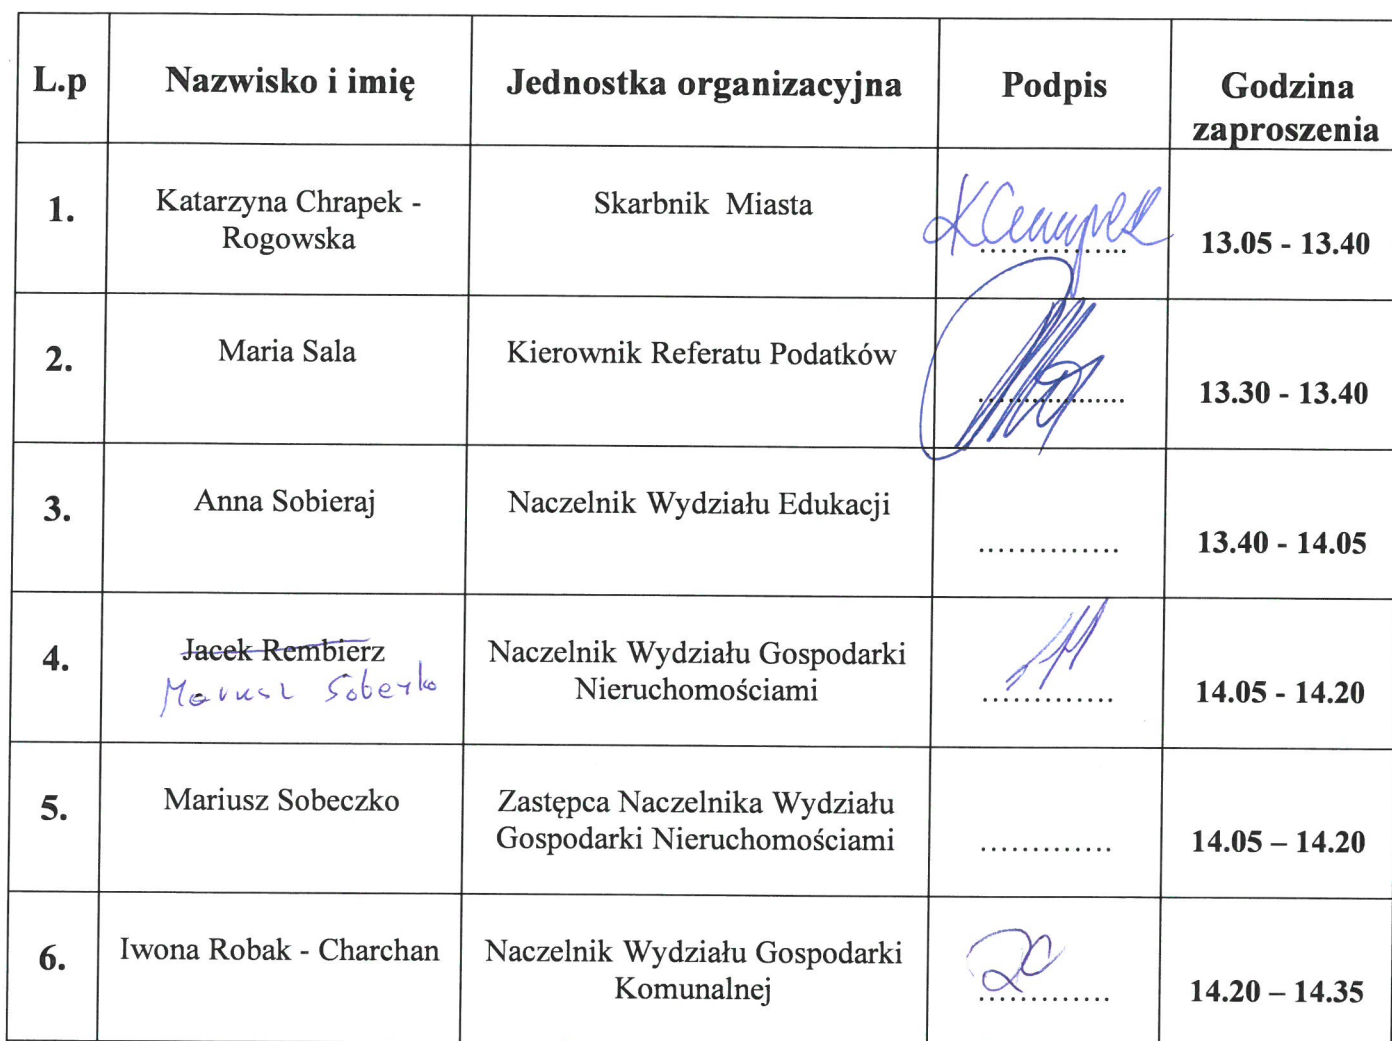 L.p Nazwisko i imię Jednostka organizacyjna Podpis Godzina
zaproszenia
1. Katarzyna Chrapek - Skarbnik Miasta
Rogowska ............... 13.05 - 13.40
2. Maria Sala Kierownik Referatu Podatków
................. 13.30 - 13.40
3. Anna Sobieraj Naczelnik Wydziału Edukacji
.............. 13.40 - 14.05
4. Jacek Rembierz Naczelnik Wydziału Gospodarki
Mariusz Nieruchomościami ............. 14.05 - 14.20
5. Mariusz Sobeczko Zastępca Naczelnika Wydziału
Gospodarki Nieruchomościami ............. 14.05 – 14.20
6. Iwona Robak - Charchan Naczelnik Wydziału Gospodarki
Komunalnej ............. 14.20 – 14.35